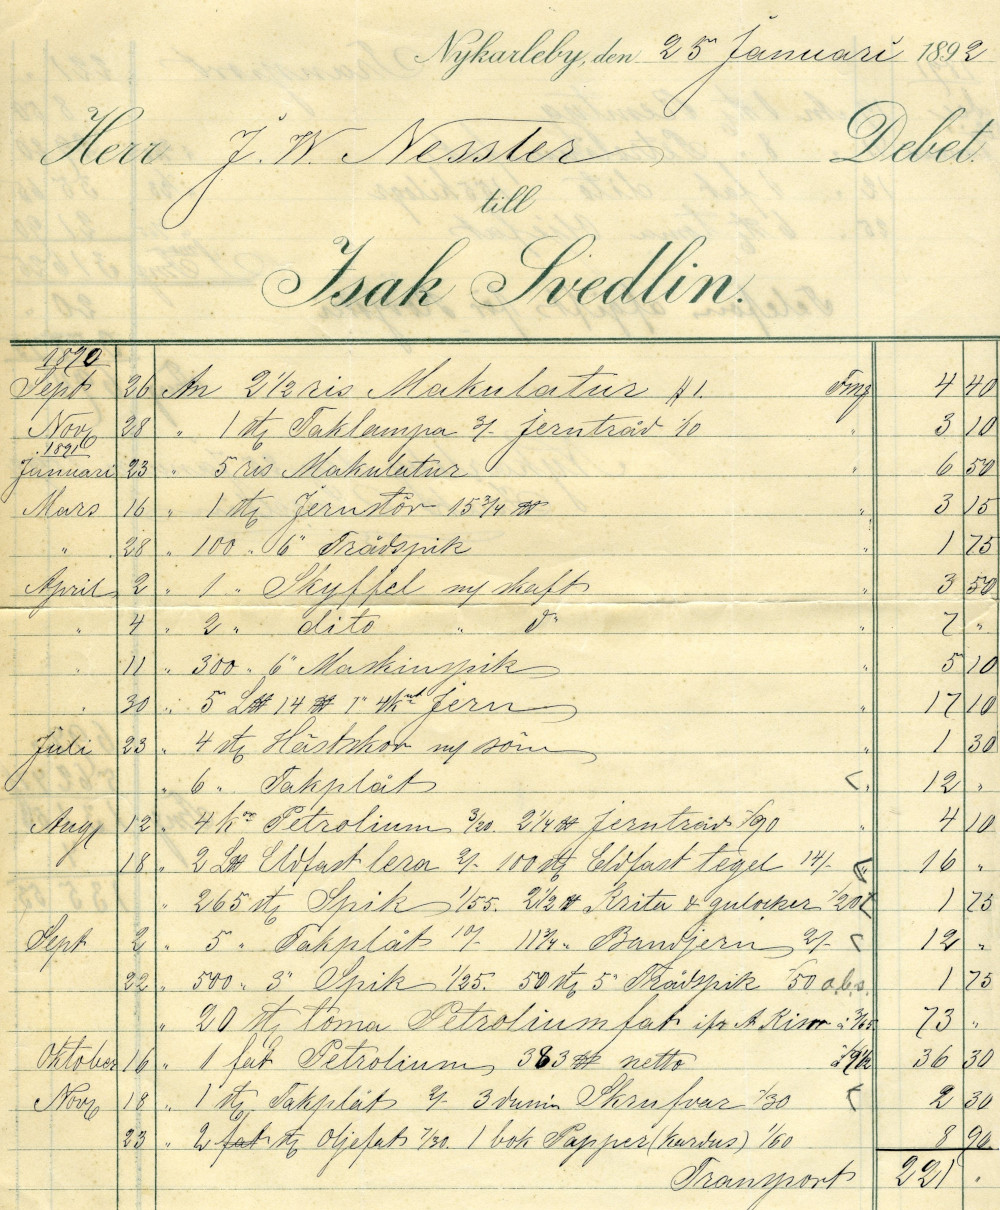 Nykarleby, den 25 Januari 1892
Herr J. W. Nessler Debet
till
Isak Svedlin.
1890
Sept 26 An 2 1/2 ris Makulatur Fmg 4 40
Nov 28 " 1 stg Taklampa 2/- Jerntråd 1/10 " 3 10
1891
Januari 23 " 5 ris Makulatur " 6 50
Mars 16 " 1 stg Jernstör 15 3/4 ℔ " 3 15
" 28 " 100 " 6" Trådspik " 1 75
April 2 " 1 " Skyffel m/ skaft " 3 50
" 4 " 2 " dito " d° " 7 "
" 11 " 300 " 6" Maskinspik " 5 10
" 30 " 5 L℔ 14 ℔ 1" 4k Jern 17 10
Juli 23 " 4 stg Hästskor m/ söm " 1 30
" 6 " Takplåt " 12 "
Aug 12 " 4 kn Petrolium 3/20. 2 1/4 ℔ Jerntråd -/90 " 4 10
18 " 2 L℔ Eldfast lera 2/- 100 stg Eldfast tegel 14/- " 16 "
" 265 stg Spik 1/55. 2 1/2 ℔ Krita & gulocker -/20 1 75
Sept 2 " 5 " Takplåt 10/- 11 3/4 " Bandjern 2/- 12 "
22 " 500 " 3" Spik 1/25. 50 stg 5" Trådspik -/50 1 75
" 20 stg toma Petroliumfat à 3/65 73 "
Oktober 16 " 1 fat Petrolium 383 ℔ netto à -/9 1/2 36 30
Nov 18 " 1 stg Takplåt 2/- 3 dussin Skrufvar -/30 2 30
23 " 2 fat stg Oljefat 7/30. 1 bok Papper (kardus) 1/60 8 90
Transport 221 "